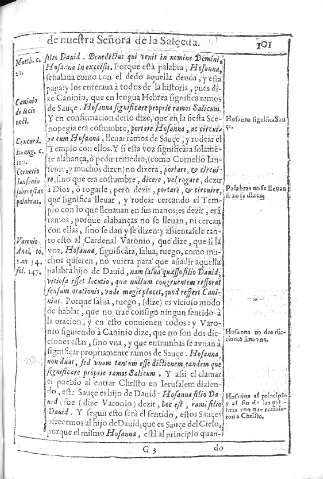 de nuestra Señora de la Salceda. 101
filio David. Benedictus qui venit in nomine Domini,
Hosanna in excelsis. Porque esta palabra, Hosanna,
señalan como con el dedo aquella deuda, y esta
paga: y los enteraua à todos de la historia, pues di-
ze Caninio, que en lengua Hebrea significa ramos
de Sauze. Hosanna significare propriè ramos Salicum.
Y en confirmacion desto dize, que en la fiesta Sce-
nopegia era costumbre, portare Hosanna, ac circui-
re cum Hosanna, lleuar ramos de Sauze, y rodear el
Templo con ellos. Y si esta voz significàra solamē-
te alabança, ò pedir remedio, (como Cornelio Ian-
senio, y muchos dizen) no dixera, portare, & circui-
re, sino que era costumbre, dicere, vel rogare, dezir
à Dios, ò rogarle, pero dezir, portare, & circuire,
que significa lleuar, y rodear cercando el Tem-
plo con lo que lleuauan en sus manos, es dezir, erā
ramos, porque alabanças no se lleuan, ni cercan
con ellas, sino se dan y se dizen: y assientale tan-
to esto al Cardenal Varonio, que dize, que si la
voz, Hosanna, significàra, salua, ruego, como mu-
chos quieren, no venìa para que añadir aquella
palabra hijo de Dauid,
vitiosa esset locutio, que nullum congruentem reffert
Porque salua, ruego, (dize) es vicioso modo
de hablar, que no trae consigo ningun sentido à
la oracion, y en esto conuienen todos: y Varo-
nio siguiendo à Caninio dize, que no son dos dic-
ciones estas, sino vna, y que entrambas se aunan à
significar propriamente ramos de Sauze. Hosanna,
non duas, sed vnam tantùm esse dictionem, eandem que
significare propriè ramos Salicum. Y assi el clamar
el pueblo al entrar Christo en Ierusalem dizien-
do, este Sauze es hijo de Dauid: Hosanna filio Da-
vid (fue (dize Varonio) dezir, hoc est, rami filio
David. Y segun esto serà el sentido, estos Sauzes
ofrecemos al hijo de Dauid, que es Sauze del Cielo,
porque el mismo Hosanna, està al principio quan-
G 5 do
Matth. c.
21.
Caninio
de locis
Concord.
Euang. c.
Cornelio
Iansenio
sobre estas
palabras.
Varonio
Anal. to.
1. an 34.
fol. 147.
Hosanna significa Sau-
ze.
Palabras no se lleuan,
Hosanna no dos dic-
ciones sino vna.
Hosanna al principio